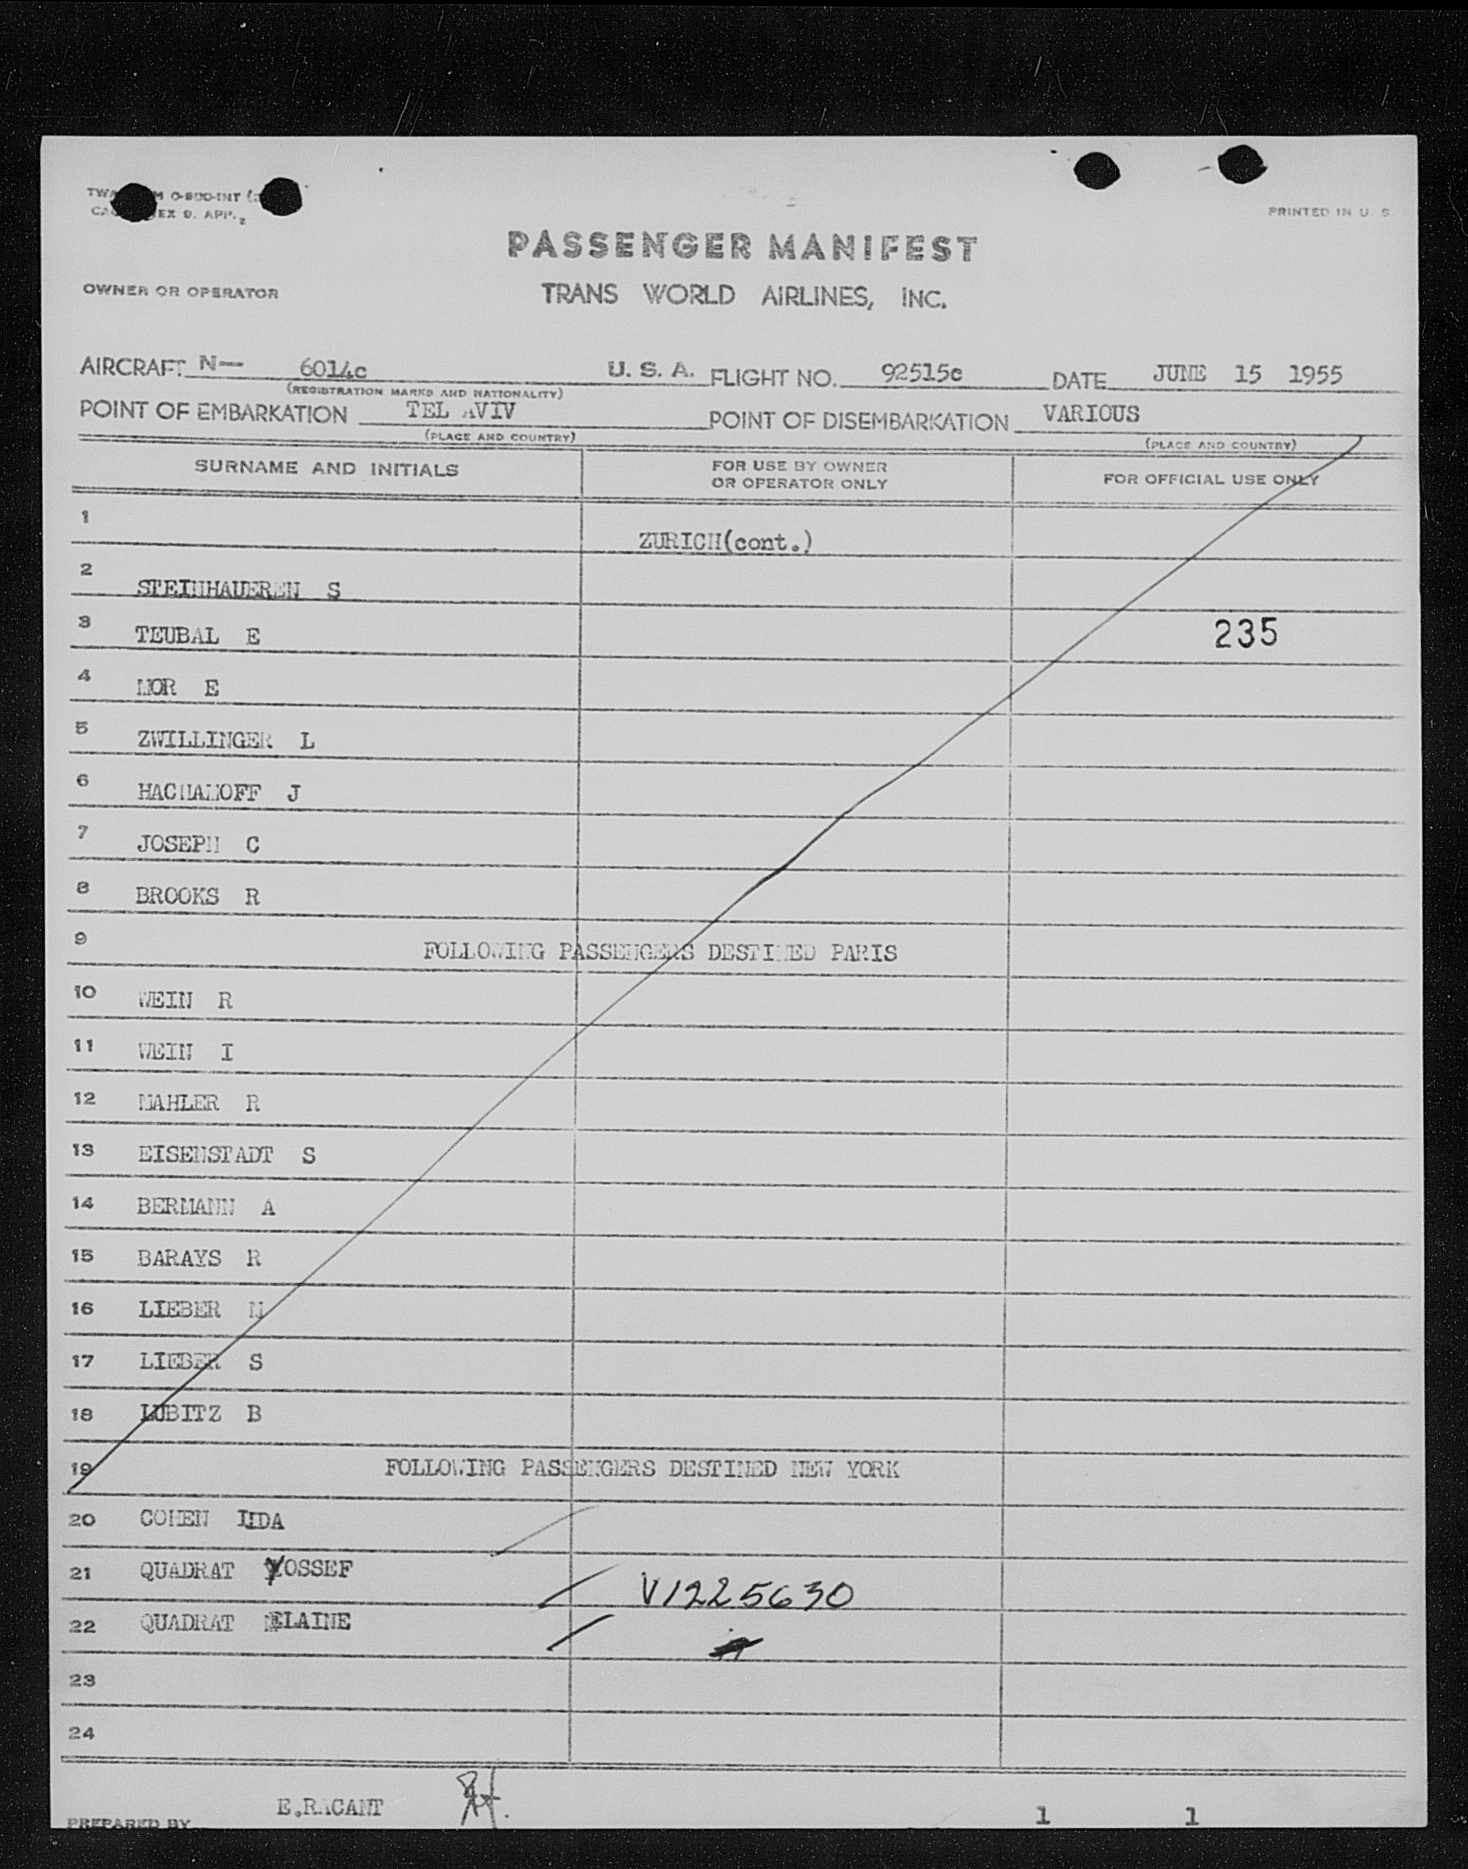 PRINTED IN U. S.
PASSENGER MANIFEST
OWNER OR OPERATOR TRANS WORLD AIRLINES, INC.
AIRCRAFT N— 6014c U. S. A. FLIGHT NO. 92515c DATE JUNE 15 1955
(REGISTRATION MARKS AND NATIONALITY)
POINT OF EMBARKATION TEL AVIV POINT OF DISEMBARKATION VARIOUS
(PLACE AND COUNTRY) (PLACE AND COUNTRY)
SURNAME AND INITIALS FOR USE BY OWNER OR OPERATOR ONLY FOR OFFICIAL USE ONLY
1 ZURICH(cont.)
2 STEINHAUEREN S
3 TEUBAL E 235
4 MOR E
5 ZWILLINGER L
6 HACHAMOFF J
7 JOSEPH C
8 BROOKS R
9 FOLLOWING PASSENGERS DESTINED PARIS
10 WEIN R
11 WEIN I
12 MAHLER R
13 EISENSTADT S
14 BERMANN A
15 BARAYS R
16 LIEBER M
17 LIEBER S
18 LUBITZ B
19 FOLLOWING PASSENGERS DESTINED NEW YORK
20 COHEN IDA
21 QUADRAT YOSSEF V1225630
22 QUADRAT ELAINE
23
24
PREPARED BY E.RACANT 1 1